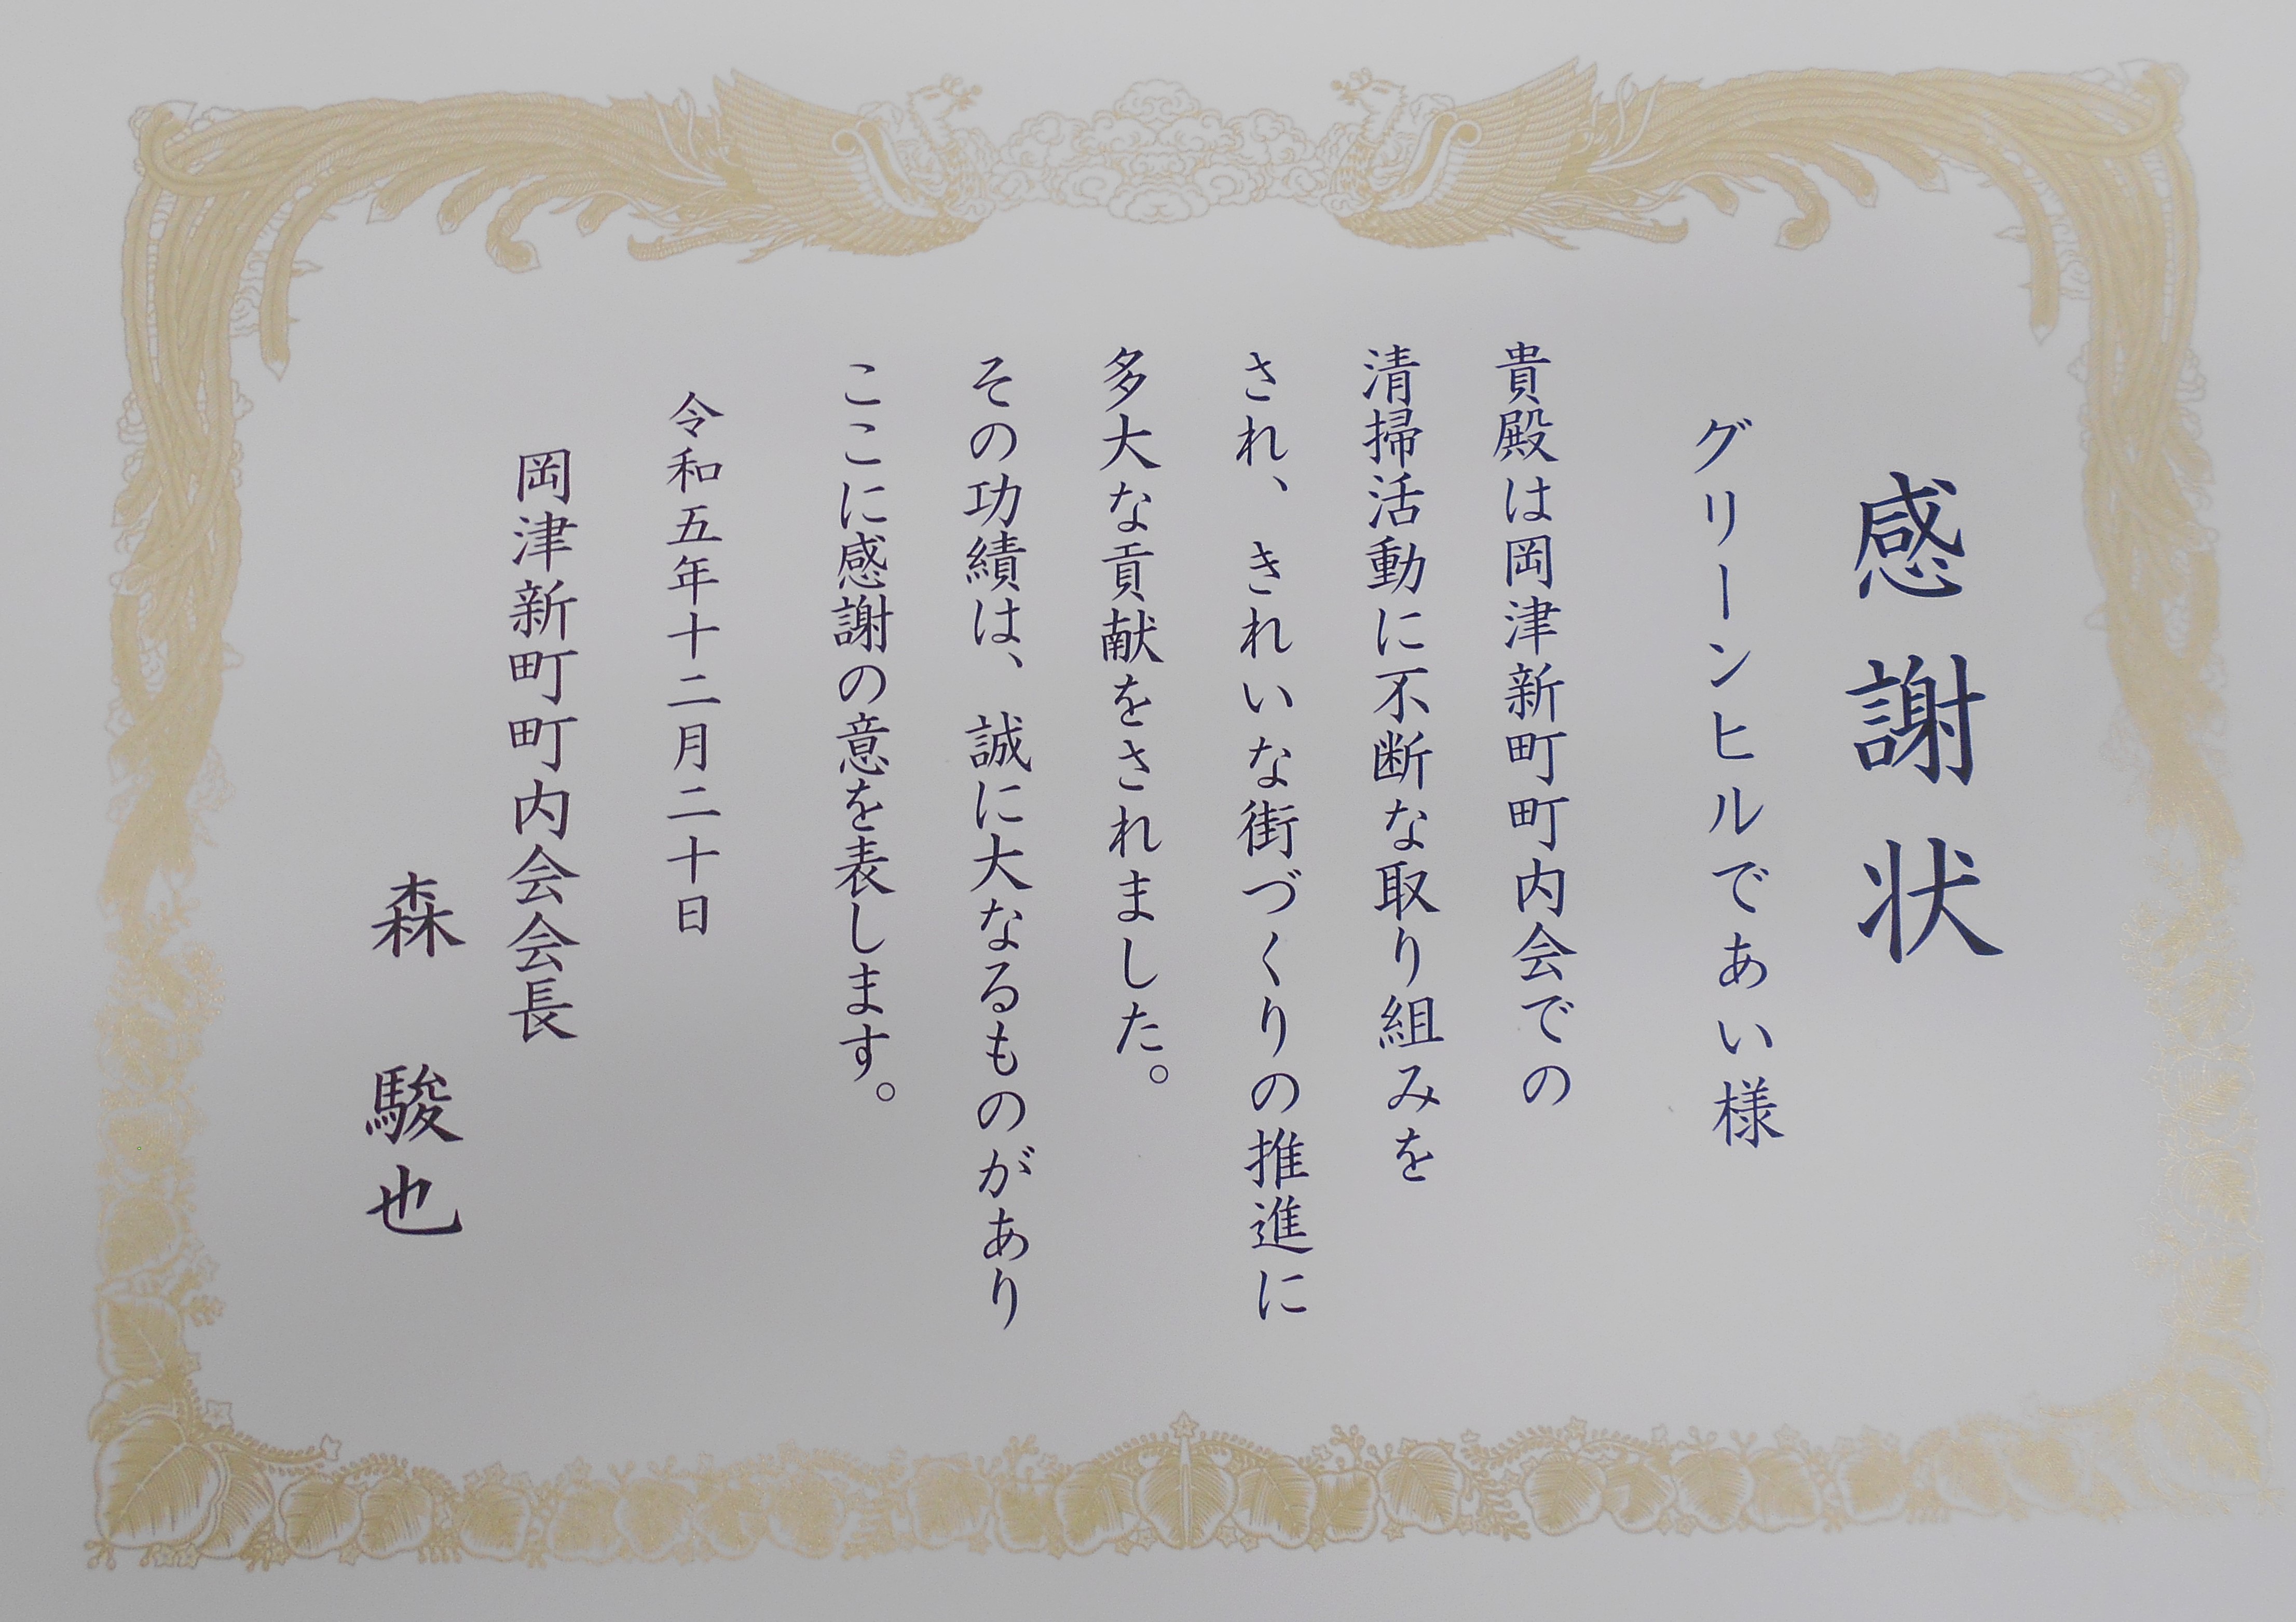 感謝状
グリーンヒルであい様
貴殿は岡津新町町内会での
清掃活動に不断な取り組みを
され、きれいな街づくりの推進に
多大な貢献をされました。
その功績は、誠に大なるものがあり
ここに感謝の意を表します。
令和五年十二月二十日
岡津新町町内会会長
森 駿也